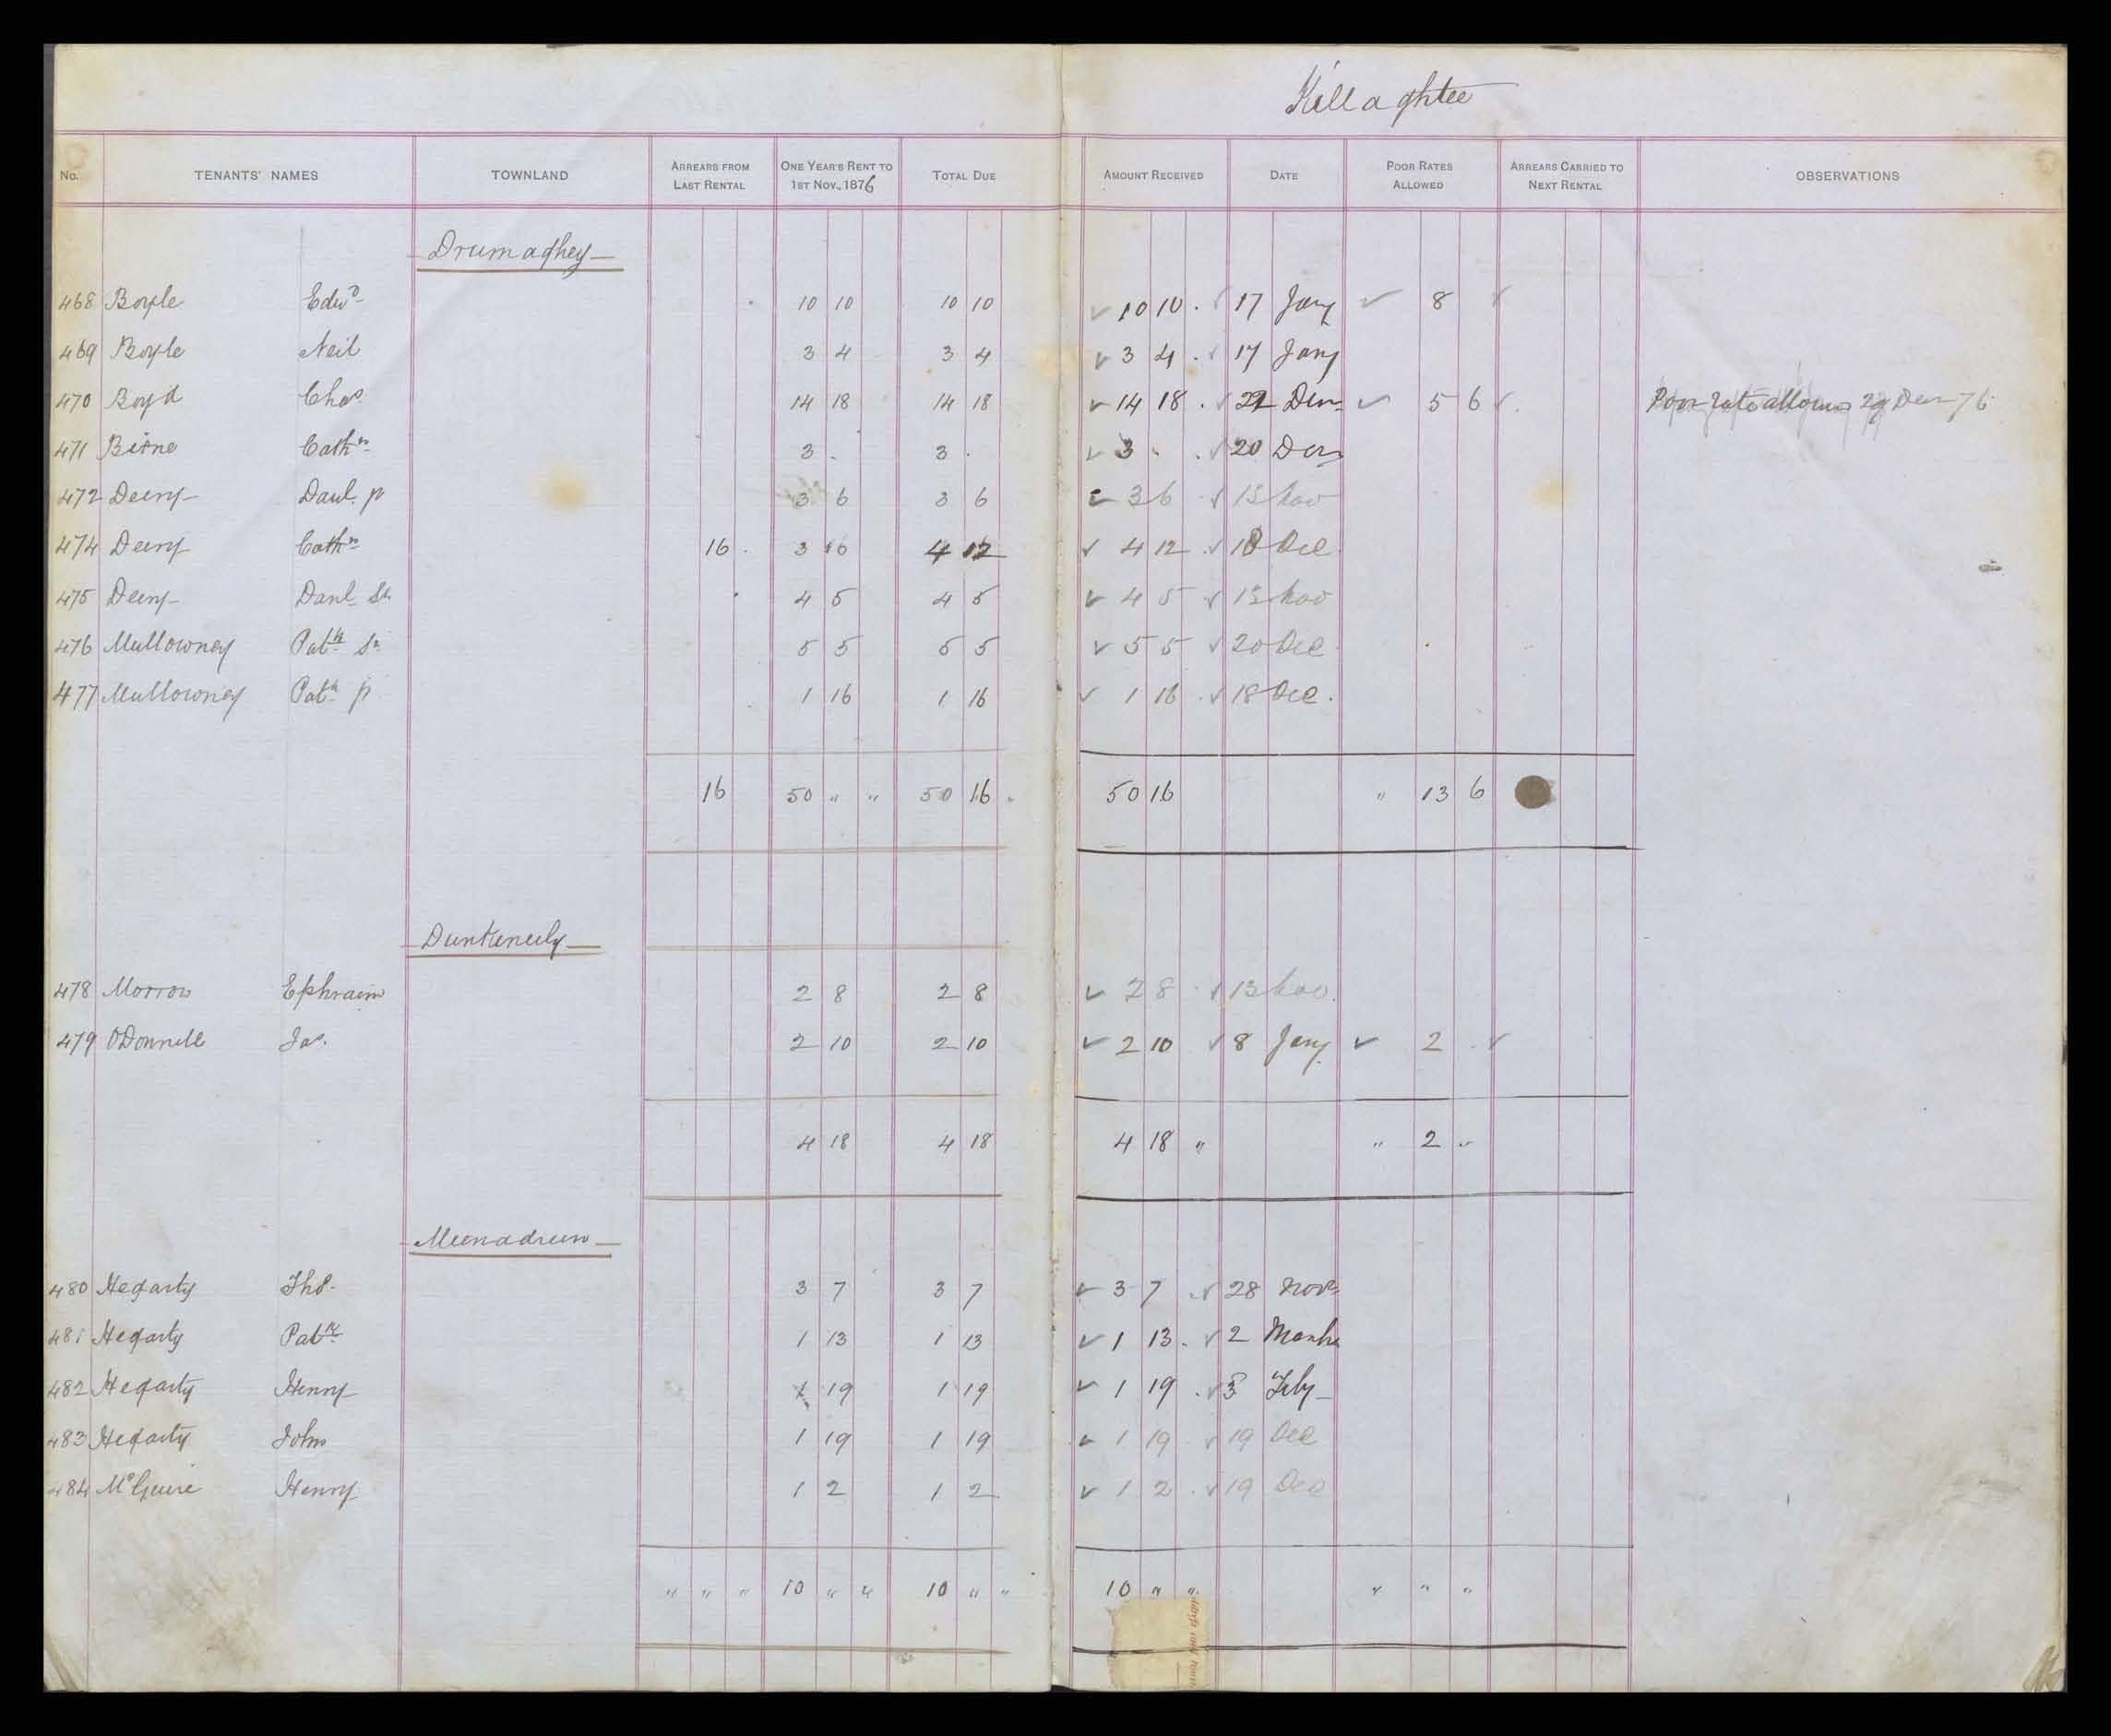 Killaghtee
No. TENANTS' NAMES TOWNLAND ARREARS FROM LAST RENTAL ONE YEAR'S RENT TO 1ST NOV., 1876 TOTAL DUE AMOUNT RECEIVED DATE POOR RATES ALLOWED ARREARS CARRIED TO NEXT RENTAL OBSERVATIONS
Drumaghey
468 Boyle Edwd 10 10 10 10 10 10 . 17 Jany 8
469 Boyle Neil 3 4 3 4 3 4 . 17 Jany
470 Boyd Chas. 14 18 14 18 14 18 . Decr 5 6 Poor rate allowed 29 Decr 76
471 Birne Cathn 3 . 3 . 3 . . 20 Decr
472 Deeny Danl. jr 3 6 3 6 3 6 13 Nov
474 Deeny Cathn 16 . 3 16 4 12 4 12 . 18 Dec
475 Deeny Danl Sr 4 5 4 5 4 5 13 Nov
476 Mullowney Patk Sr 5 5 5 5 5 5 20 Dec
477 Mullowney Patk jr 1 16 1 16 1 16 . 18 Dec.
16 50 " " 50 16 " 50 16 " 13 6
Duntaneily
478 Morrow Ephraim 2 8 2 8 2 8 13 Nov.
479 O'Donnell Jas. 2 10 2 10 2 10 8 Jany 2
4 18 4 18 4 18 " " 2 "
Meenadreen
480 Hegarty Thos. 3 7 3 7 3 7 . 28 Novr
481 Hegarty Patk 1 13 1 13 1 13 . 2 March
482 Hegarty Henry 1 19 1 19 1 19 . 3 Feby
483 Hegarty John 1 19 1 19 1 19 19 Dec
484 McGuire Henry 1 2 1 2 1 2 . 19 Dec
" " " 10 " " 10 " " 10 " " " " "